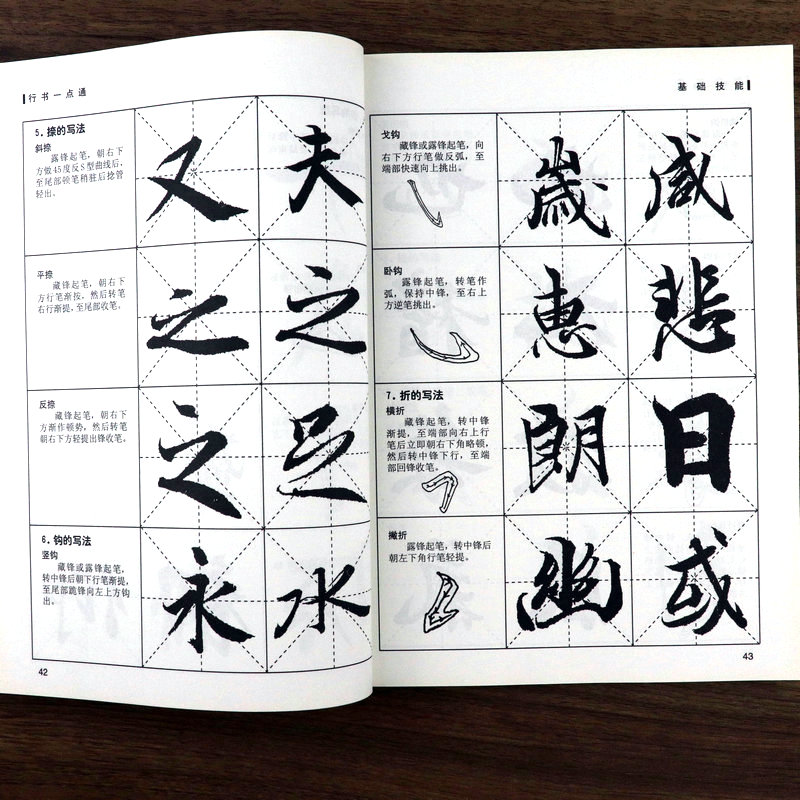 行书一点通
5．捺的写法
斜捺
露锋起笔，朝右下
方做45度反S型曲线后，
至尾部顿笔稍驻后捻管
轻出。
又 夫
平捺
藏锋起笔，朝右下
方行笔渐按，然后转笔
右行渐提，至尾部收笔。
之 之
反捺
藏锋起笔，朝右下
方渐作顿势，然后转笔
朝右下方轻提出锋收笔。
之 足
6．钩的写法
竖钩
藏锋或露锋起笔，
转中锋后朝下行笔渐提，
至尾部跪锋向左上方钩
出。
永 水
42
基础技能
戈钩
藏锋或露锋起笔，向
右下方行笔做反弧，至
端部快速向上挑出。
歲 咸
卧钩
露锋起笔，转笔作
弧，保持中锋，至右上
方逆笔挑出。
惠 悲
7．折的写法
横折
藏锋起笔，转中锋
渐提，至端部向右上行
笔后立即朝右下角略顿，
然后转中锋下行，至端
部回锋收笔。
朗 日
撇折
露锋起笔，转中锋后
朝左下角行笔轻提。
幽 或
43